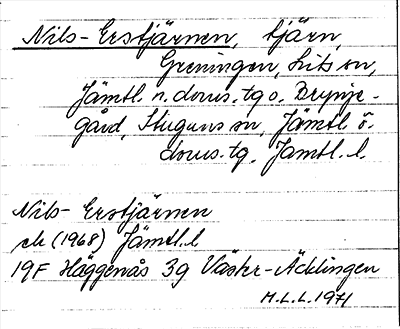 Nils-Erstjärnen, tjärn,
Greningen, Lits sn,
Jämtl. n. doms. tg o. Brynje-
gård, Stuguns sn, Jämtl. ö.
doms. tg, Jämtl. l.
Nils-Erstjärnen
ek (1968) Jämtl. l
19F Häggenås 3g Väster-Äcklingen
M.L.L. 1971